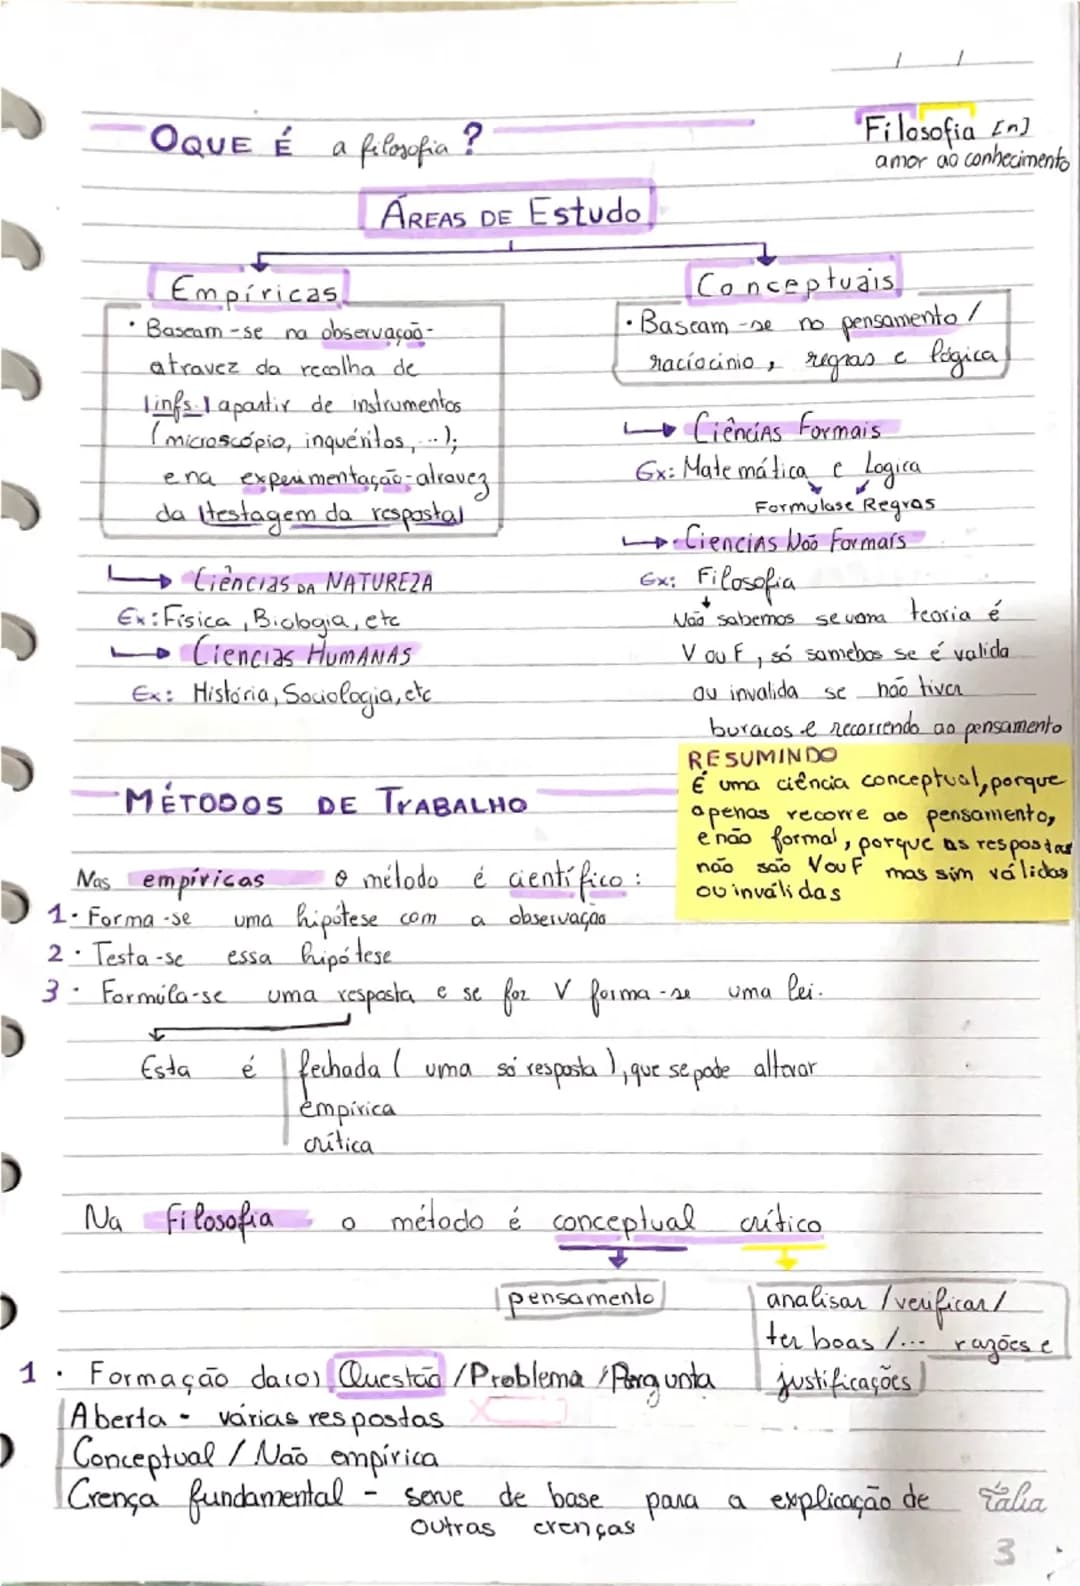 / /
OQUE É a filosofia ?
Filosofia [n]
amor ao conhecimento
ÁREAS DE Estudo
Empíricas
• Baseam-se na observação-
atravez da recolha de
|infs.| apartir de instrumentos
(microscópio, inquéritos, ...);
e na experimentação-atravez
da |testagem da resposta|
→ Ciências DA NATUREZA
Ex: Física, Biologia, etc
→ Ciencias HUMANAS
Ex: História, Sociologia, etc
Conceptuais
• Baseam-se no pensamento /
raciocinio, regras e lógica
→ Ciências Formais
Ex: Matemática e Logica
Formulas e Regras
→ Ciencias Não Formais
Ex: Filosofia
Não sabemos se uma teoria é
V ou F, só samebos se é valida
ou invalida se não tiver
buracos e recorrendo ao pensamento
RESUMINDO
É uma ciência conceptual, porque
apenas recorre ao pensamento,
e não formal, porque as respostas
não são V ou F mas sim válidas
ou inválidas
MÉTODOS DE TRABALHO
Nas empíricas o método é científico:
1. Forma-se uma hipótese com a observação
2. Testa-se essa hipótese
3. Formula-se uma resposta e se for V forma-se uma lei.
Esta é fechada (uma só resposta), que se pode alterar
empírica
crítica
Na Filosofia o método é conceptual crítico
pensamento
analisar /verificar/
ter boas /... razões e
justificações
1. Formação da(o) Questão /Problema /Pergunta
Aberta - várias respostas
Conceptual / Não empírica
Crença fundamental - serve de base para a explicação de
outras crenças
Tália
3